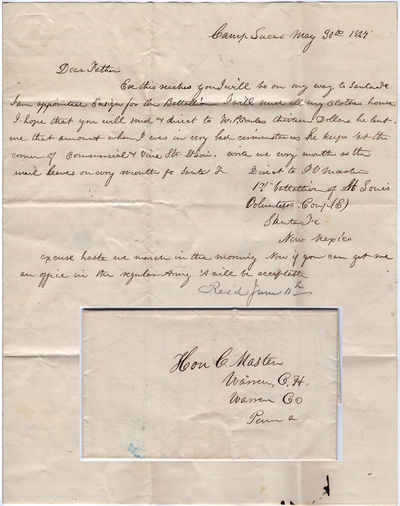 Camp Lucas May 30th 1847
Dear Father
Ere this reaches you I will be on my way to Santa Fe
I am appointed Ensign for the Battallion I will send all my clothes home
I hope that you will send & direct to W. thirteen Dollars he lent
me that amount when I was in very bad circumstances he keeps at the
corner of Commercial & Vine Sts St Louis. write me evry month as the
mail leaves on evry month for Santa F Direct to P V Master
1st battallion of St Louis
Volunteers Comp (E)
Santa Fe
New Mexico
excuse haste we march in the morning Now if you can get me
an office in the regular Army it will be acceptable
Recd June 11th
Hon C. Master
Warren, C. H.
Warren Co
Penn a